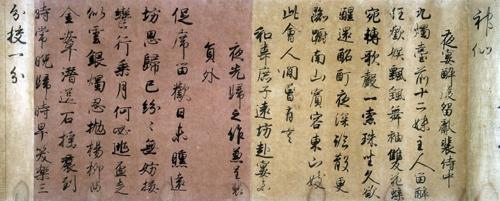 神仙
夜宴醉後留獻裴侍中
九燭臺前十二姝主人留醉
任歡娛飄飖舞袖雙飛蝶
宛轉歌聲一索珠坐久欲
醒還酩酊夜深臨散更
踟躕南山賓客東山妓
此會人間曾有無
和韋庶子遠坊赴宴未
夜先歸之作兼呈裴
員外
促席留歡日未曛遠
坊思歸已紛紛無妨按
轡行乘月何必逃盃走
似雲銀燭忍拋楊柳曲
金鞍潛送石榴裙到
時常晚歸時早笑樂三
分校一分